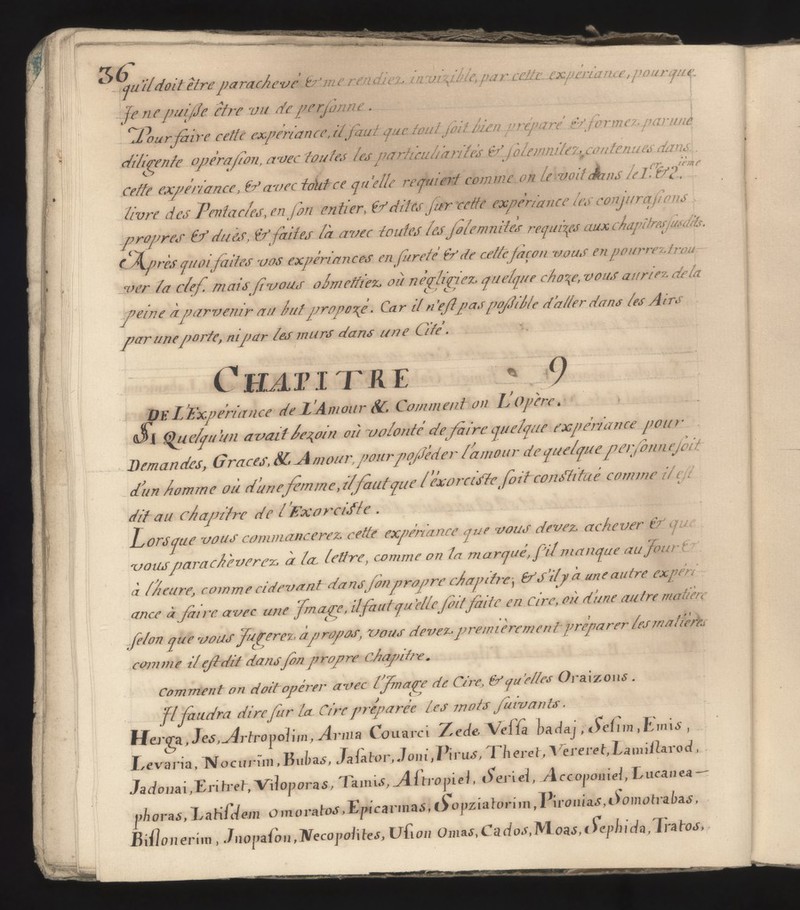 36
qu'il doit être parachevé & me rendiez invizible, par cette expériance, pourque
Je ne puisse être vu de personne.
Pour faire cette expériance, il faut que tout soit bien preparé & formez par une
diligente opérasion, avec toutes les particuliarités & solemnitez, contenues dans
cette expériance, & avec tout ce qu'elle requiert comme on le voit dans le I.er & 2.ieme
livre des Pentacles, en son entier, & dites sur cette expériance les conjurasions
propres & duës, & faites la avec toutes les solemnités requizes aux chapitres susdits.
Après quoi faites vos expériances en sureté & de cette façon vous en pourrez trou-
ver la clef. mais si vous obmettiez où négligiez quelque choze, vous auriez de la
peine à parvenir au but propozé. Car il n'est pas possible d'aller dans les Airs
par une porte, ni par les murs dans une Cité.
CHAPITRE 9
DE L'Expériance de L'Amour & Comment on L'Opère.
SI Quelqu'un avait bezoin où volonté de faire quelque expériance pour
Demandes, Graces, & Amour, pour posséder l'amour de quelque personne soit
d'un homme où d'une femme, il faut que l'éxorciste soit constitué comme il est
dit au Chapitre de l'Exorciste.
Lorsque vous commancerez cette expériance que vous devez achever & que
vous parachèverez à la lettre, comme on la marqué, s'il manque au Jour &
à l'heure, comme cidevant dans son propre chapitre; & s'il y à une autre expéri-
ance à faire avec une Jmage, il faut qu'elle soit faite en Cire, où d'une autre matière
selon que vous Jugerez àpropos, vous devez premièrement préparer les matières
comme il est dit dans son propre Chapitre.
Comment on doit opérer avec l'Jmage de Cire, & qu'elles Oraizons.
Jl faudra dire sur la Cire préparée les mots suivants.
Herga, Jes, Artropolim, Arma Couarci Zede Vessa badaj, Sesim, Emis,
Levaria, Nocurim, Bubas, Jasator, Joni, Pirus, Theret, Vereret, Lamislarod,
Jadonai, Eritret, Viloporas, Tamis, Astropiel, Seriel, Accoponiel, Lucanea-
phoras, Latisdem omoratos, Epicarmas, Sopziatorim, Pironias, Somotrabas,
Bislonerim, Jnopason, Necopolites, Usion Omas, Cados, Moas, Sephida, Tratos,